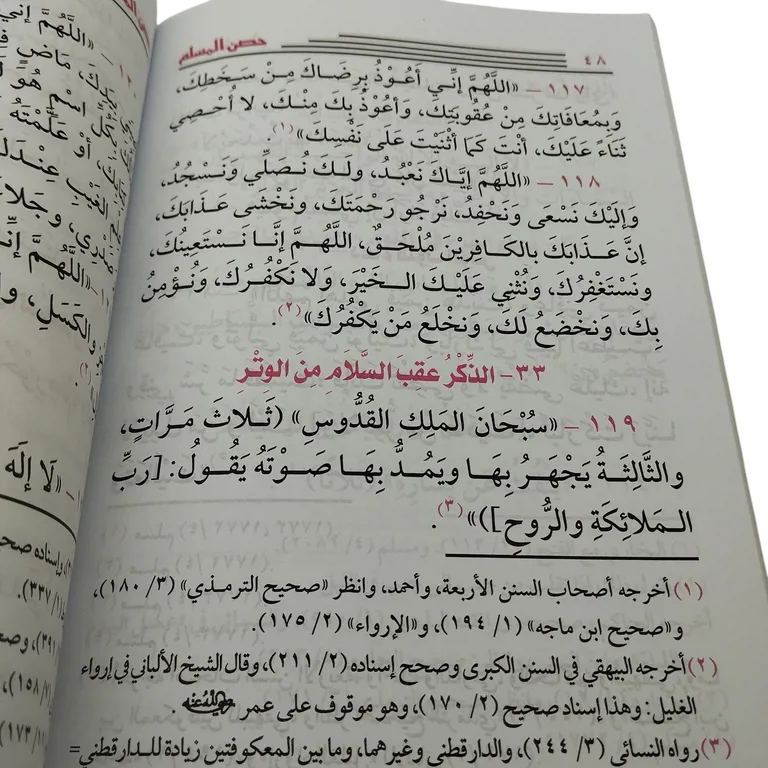 ٤٨ حصن المسلم
١١٧ – «اللَّهُمَّ إِنِّي أَعُوْذُ بِرِضَاكَ مِنْ سَخَطِكَ،
وَبِمُعَافَاتِكَ مِنْ عُقُوبَتِكَ، وَأَعُوْذُ بِكَ مِنْكَ، لَا أُحْصِي
ثَنَاءً عَلَيْكَ، أَنْتَ كَمَا أَثْنَيْتَ عَلَى نَفْسِكَ» (١)
١١٨ – «اللَّهُمَّ إِيَّاكَ نَعْبُدُ، وَلَكَ نُصَلِّي وَنَسْجُدُ،
وَإِلَيْكَ نَسْعَى وَنَحْفِدُ، نَرْجُو رَحْمَتَكَ، وَنَخْشَى عَذَابَكَ،
إِنَّ عَذَابَكَ بِالكَافِرِيْنَ مُلْحَقٌ، اللَّهُمَّ إِنَّا نَسْتَعِينُكَ،
وَنَسْتَغْفِرُكَ، وَنُثْنِي عَلَيْكَ الخَيْرَ، وَلَا نَكْفُرُكَ، وَنُؤْمِنُ
بِكَ، وَنَخْضَعُ لَكَ، وَنَخْلَعُ مَنْ يَكْفُرُكَ» (٢).
٣٣- الذِّكْرُ عَقِبَ السَّلَامِ مِنَ الوِتْرِ
١١٩ – «سُبْحَانَ المَلِكِ القُدُّوسِ» (ثَلَاثَ مَرَّاتٍ،
وَالثَّالِثَةُ يَجْهَرُ بِهَا وَيَمُدُّ بِهَا صَوْتَهُ يَقُولُ: [رَبِّ
المَلَائِكَةِ وَالرُّوحِ])» (٣).
(١) أخرجه أصحاب السنن الأربعة، وأحمد، وانظر «صحيح الترمذي» (٣/ ١٨٠)،
و«صحيح ابن ماجه» (١/ ١٩٤)، و«الإرواء» (٢/ ١٧٥).
(٢) أخرجه البيهقي في السنن الكبرى وصحح إسناده (٢/ ٢١١)، وقال الشيخ الألباني في إرواء
الغليل: وهذا إسناد صحيح (٢/ ١٧٠)، وهو موقوف على عمر رضي الله عنه.
(٣) رواه النسائي (٣/ ٢٤٤)، والدارقطني وغيرهما، وما بين المعكوفتين زيادة للدارقطني=